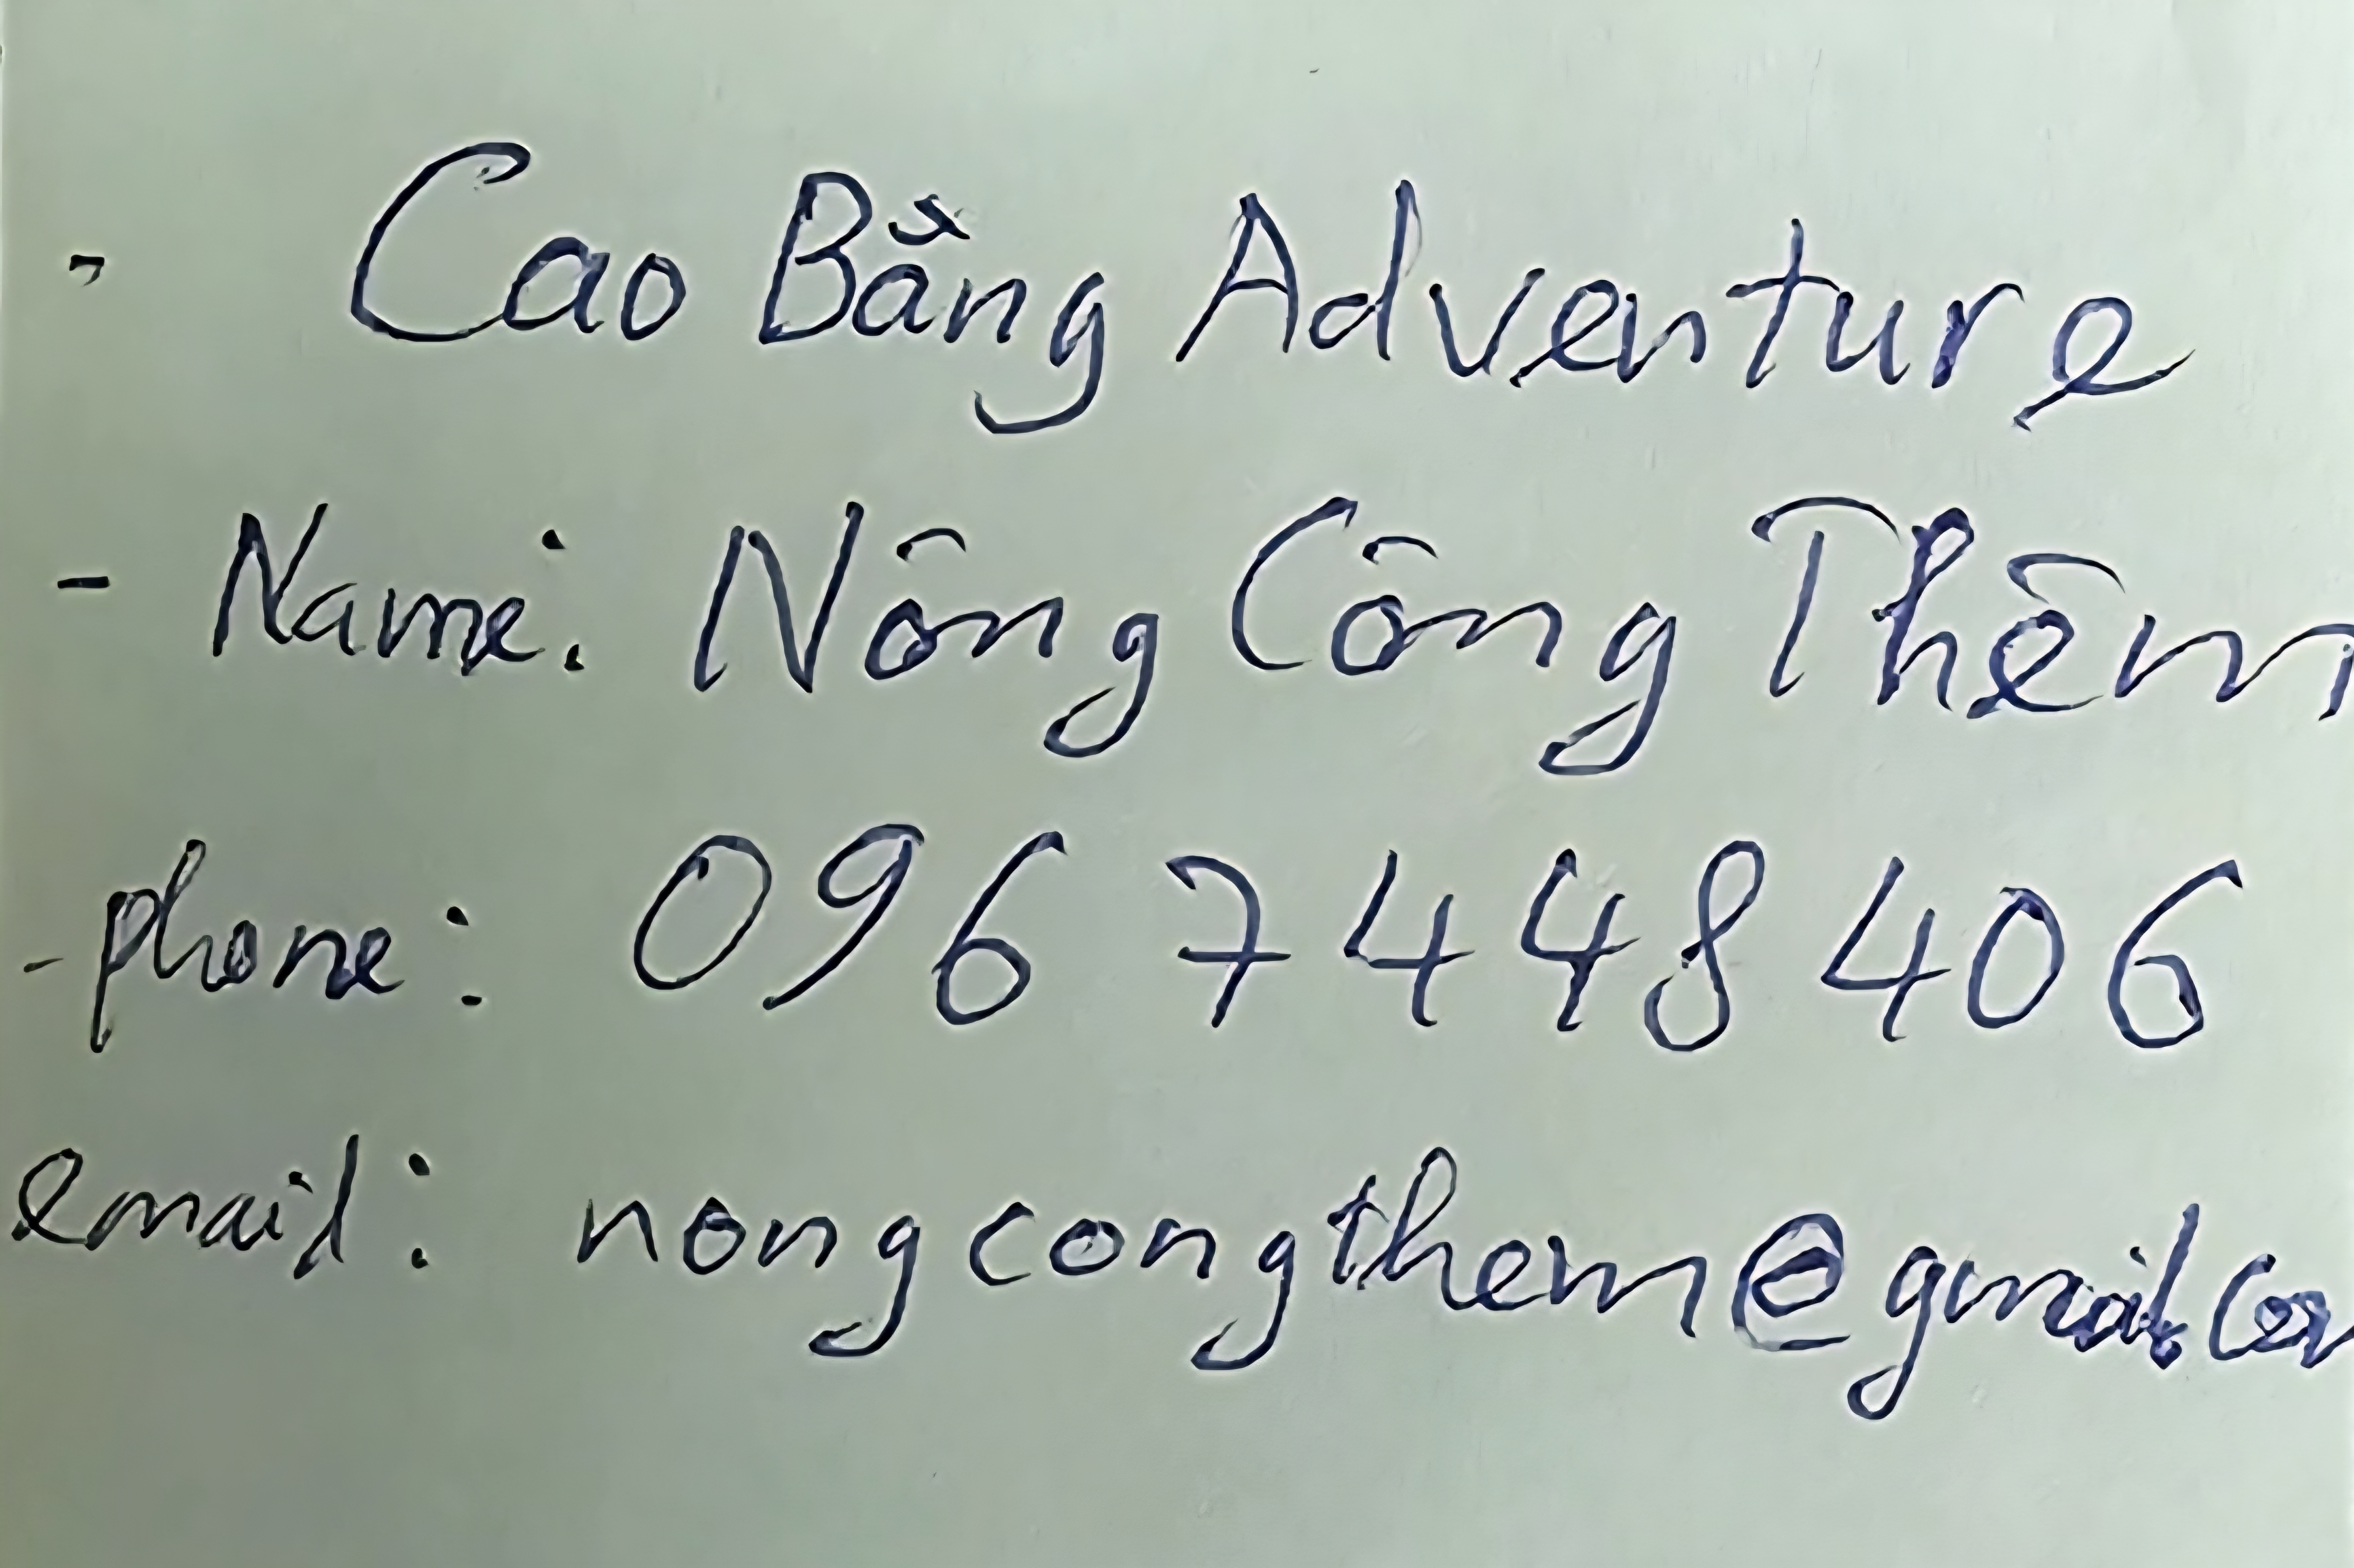 - Cao Bằng Adventure
- Name: Nông Công Thêm
- phone: 096 7448 406
email: nongcongthem@gmail.com